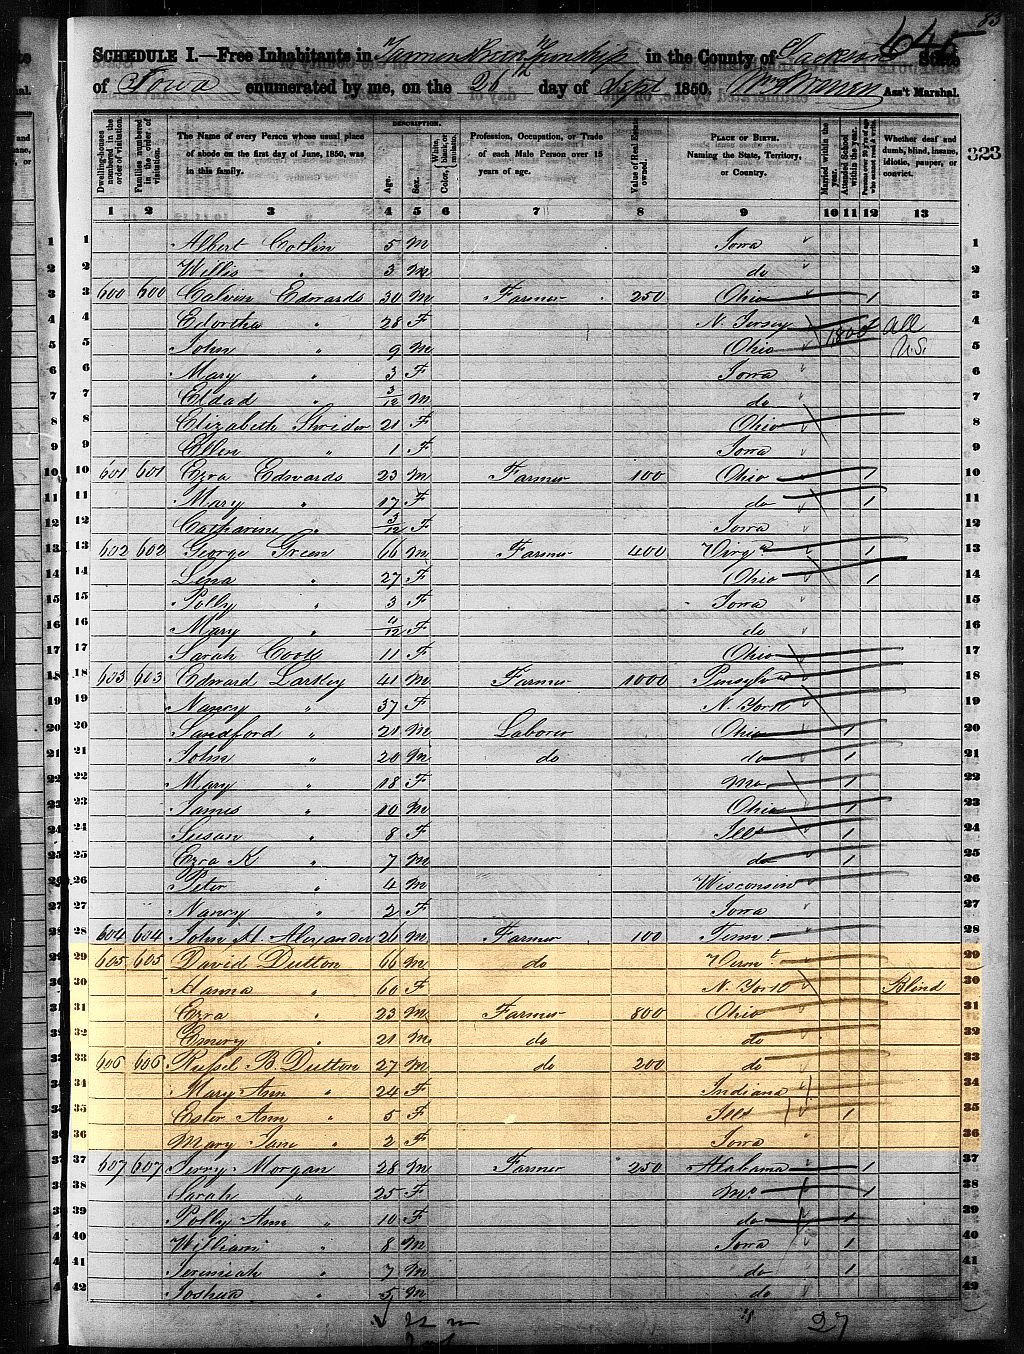 83
645
SCHEDULE I.—Free Inhabitants in Farmers Creek Township in the County of Jackson State
of Iowa enumerated by me, on the 26th day of Sept 1850. Wm A Warren Ass't Marshal.
323
Dwelling-houses numbered in the order of visitation.
Families numbered in the order of visitation.
The Name of every Person whose usual place of abode on the first day of June, 1850, was in this family.
DESCRIPTION.
Age.
Sex.
Color, { White, black, or mulatto.
Profession, Occupation, or Trade of each Male Person over 15 years of age.
Value of Real Estate owned.
PLACE OF BIRTH. Naming the State, Territory, or Country.
Married within the year.
Attended School within the year.
Persons over 20 y'rs of age who cannot read & write.
Whether deaf and dumb, blind, insane, idiotic, pauper, or convict.
1 2 3 4 5 6 7 8 9 10 11 12 13
1 Albert Cotlin 5 M Iowa 1
2 Willis " 3 M do 2
3 600 600 Calvin Edwards 30 M Farmer 250 Ohio 1 3
4 " 28 F N. Jersey All 4
5 John " 9 M Ohio U.S. 5
6 Mary " 3 F Iowa 6
7 Eldad " 3/12 M do 7
8 Elizabeth Shrider 21 F Ohio 8
9 Ellen " 1 F Iowa 9
10 601 601 Ezra Edwards 23 M Farmer 100 Ohio 1 10
11 Mary " 17 F do 1 11
12 Catharine " 3/12 F Iowa 12
13 602 602 George Green 66 M Farmer 400 Virga 1 13
14 Lena " 27 F Ohio 1 14
15 Polly " 3 F Iowa 15
16 Mary " /12 F do 16
17 Sarah Cook 11 F Ohio 17
18 603 603 Edward 41 M Farmer 1000 18
19 Nancy " 37 F N. York 19
20 Sandford " 21 M Laborer Ohio 1 20
21 John " 20 M do do 1 21
22 Mary " 18 F Mo 1 22
23 James " 10 M Ohio 1 23
24 Susan " 8 F Ills 1 24
25 Ezra K " 7 M do 1 25
26 Peter " 4 M Wisconsin 26
27 Nancy " 2 F Iowa 27
28 604 604 John M. Alexander 26 M Farmer 100 Tenn. 28
29 605 605 David Dutton 66 M do Vermt 29
30 Hanna " 60 F N. York Blind 30
31 Ezra " 23 M Farmer 800 Ohio 31
32 Emery " 21 M do do 32
33 606 606 Russel B. Dutton 27 M do 200 do 33
34 Mary Ann " 24 F Indiana 34
35 Ester Ann " 5 F Ills 1 35
36 Mary Jane " 2 F Iowa 36
37 607 607 Jerry Morgan 28 M Farmer 250 Alabama 1 37
38 Sarah " 25 F Mo 1 38
39 Polly Ann " 10 F do 1 39
40 William " 8 M Iowa 1 40
41 Jeremiah " 7 M do 1 41
42 Joshua " 5 M do 42
27